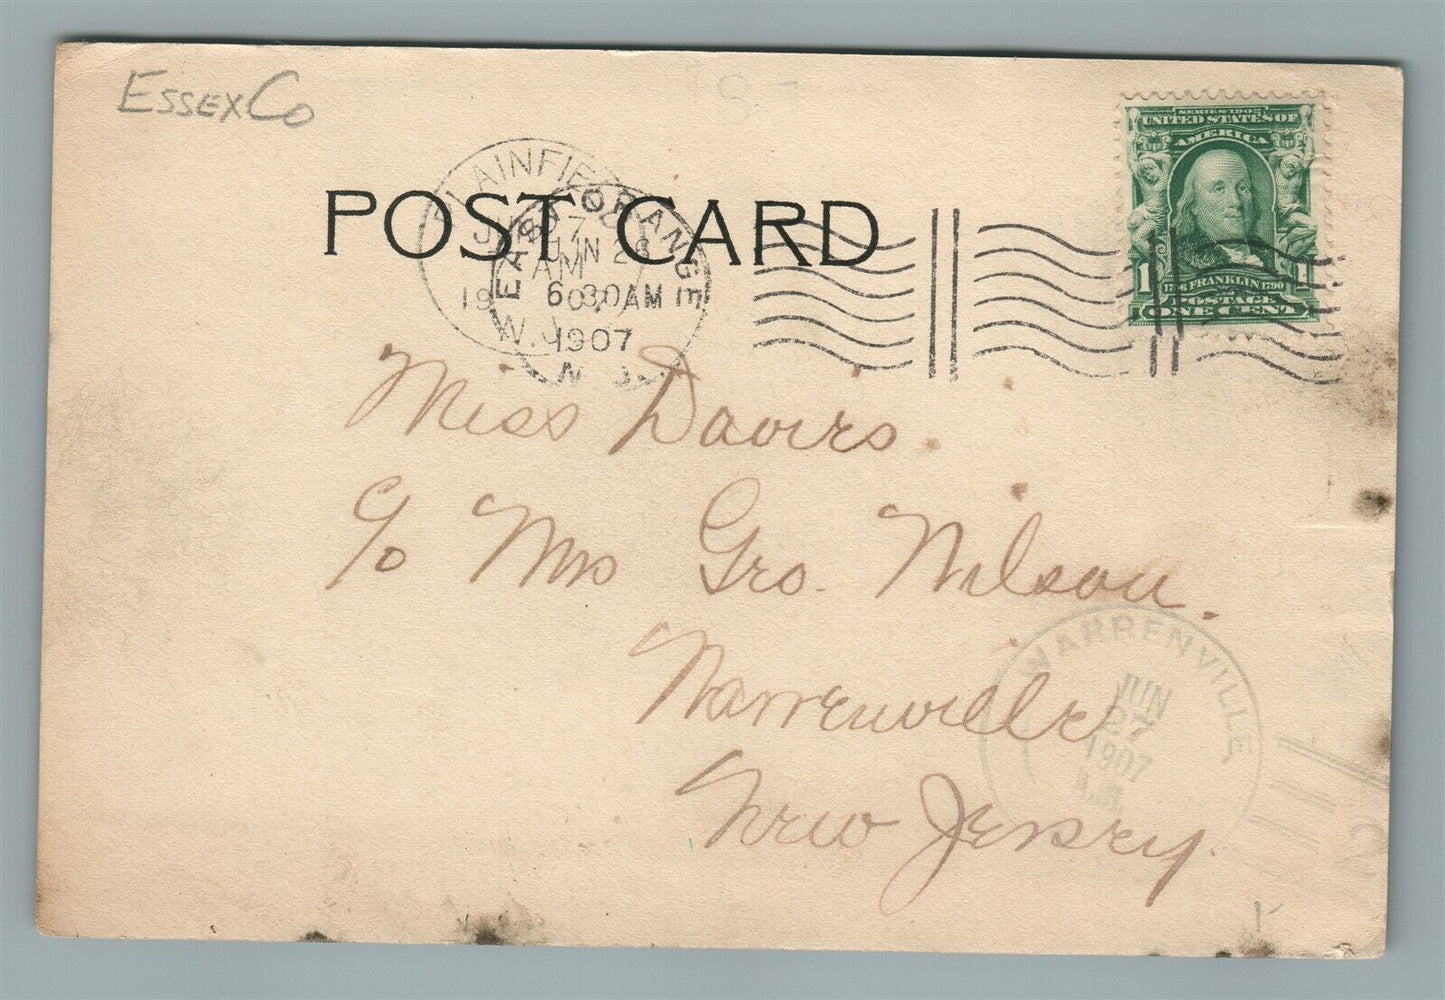 Essex Co
SERIES 1902
UNITED STATES OF
AMERICA
1 1
1706 FRANKLIN 1790
POSTAGE
ONE CENT
PLAINFIELD
AM
19
N.J.
POST CARD
EAST ORANGE
JUN 26
6 30 AM
1907
N.J.
Miss Davies.
c/o Mrs Geo. Wilson.
Warrenville
New Jersey.
WARRENVILLE
JUN
27
1907
A.M.